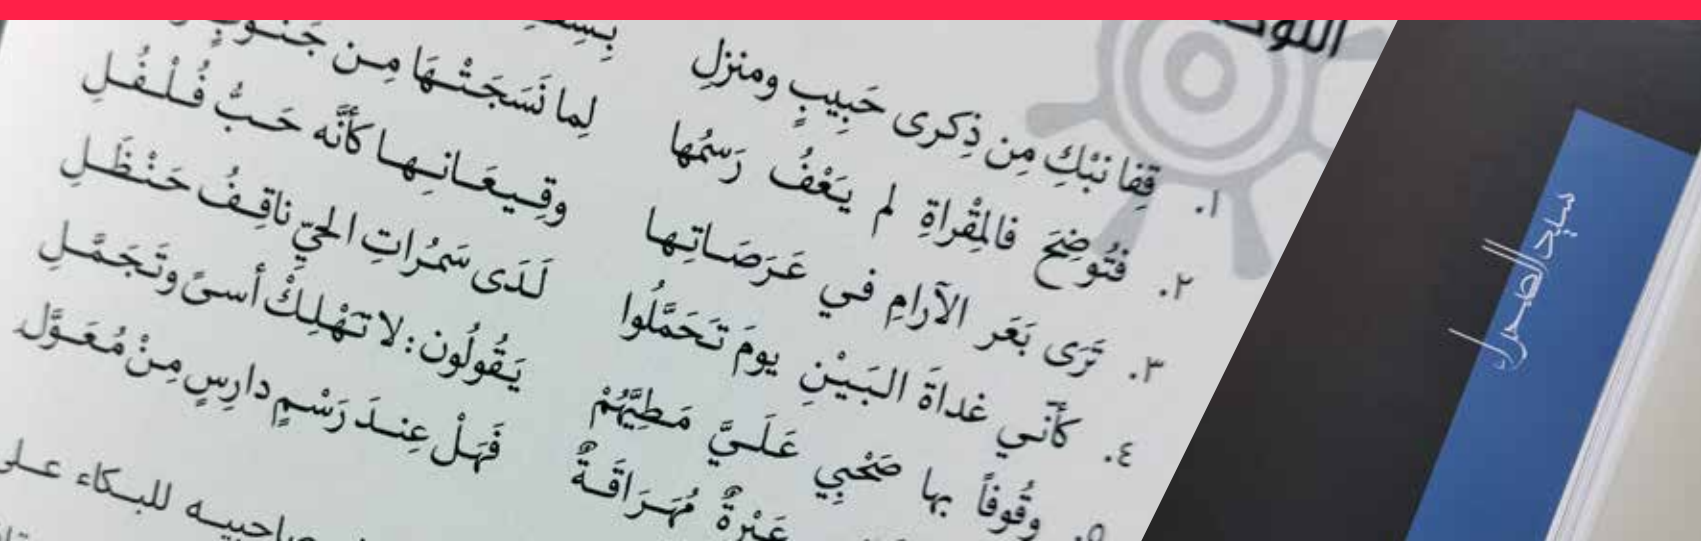 ١. قِفا نَبْكِ مِن ذِكرى حَبِيبٍ ومنزلِ
٢. فتُوضِحَ فالمِقْراةِ لم يَعْفُ رَسمُها لِما نَسَجَتْهَا مِن جَنُوبٍ
٣. تَرَى بَعَر الآرامِ في عَرَصَاتِها وقِيعَانِها كأنَّه حَبُّ فُلْفُلِ
٤. كأنّي غداةَ البَيْنِ يومَ تَحَمَّلُوا لَدَى سَمُراتِ الحيّ ناقِفُ حَنْظَلِ
٥. وُقُوفاً بها صَحْبِي عَلَيَّ مَطِيَّهُمْ يَقُولُون: لا تَهْلِكْ أسىً وتَجَمَّلِ
عَبْرةٌ مُهَرَاقَةٌ فَهَلْ عِندَ رَسْمٍ دارِسٍ مِنْ مُعَوَّلِ
صاحبيه للبكاء على